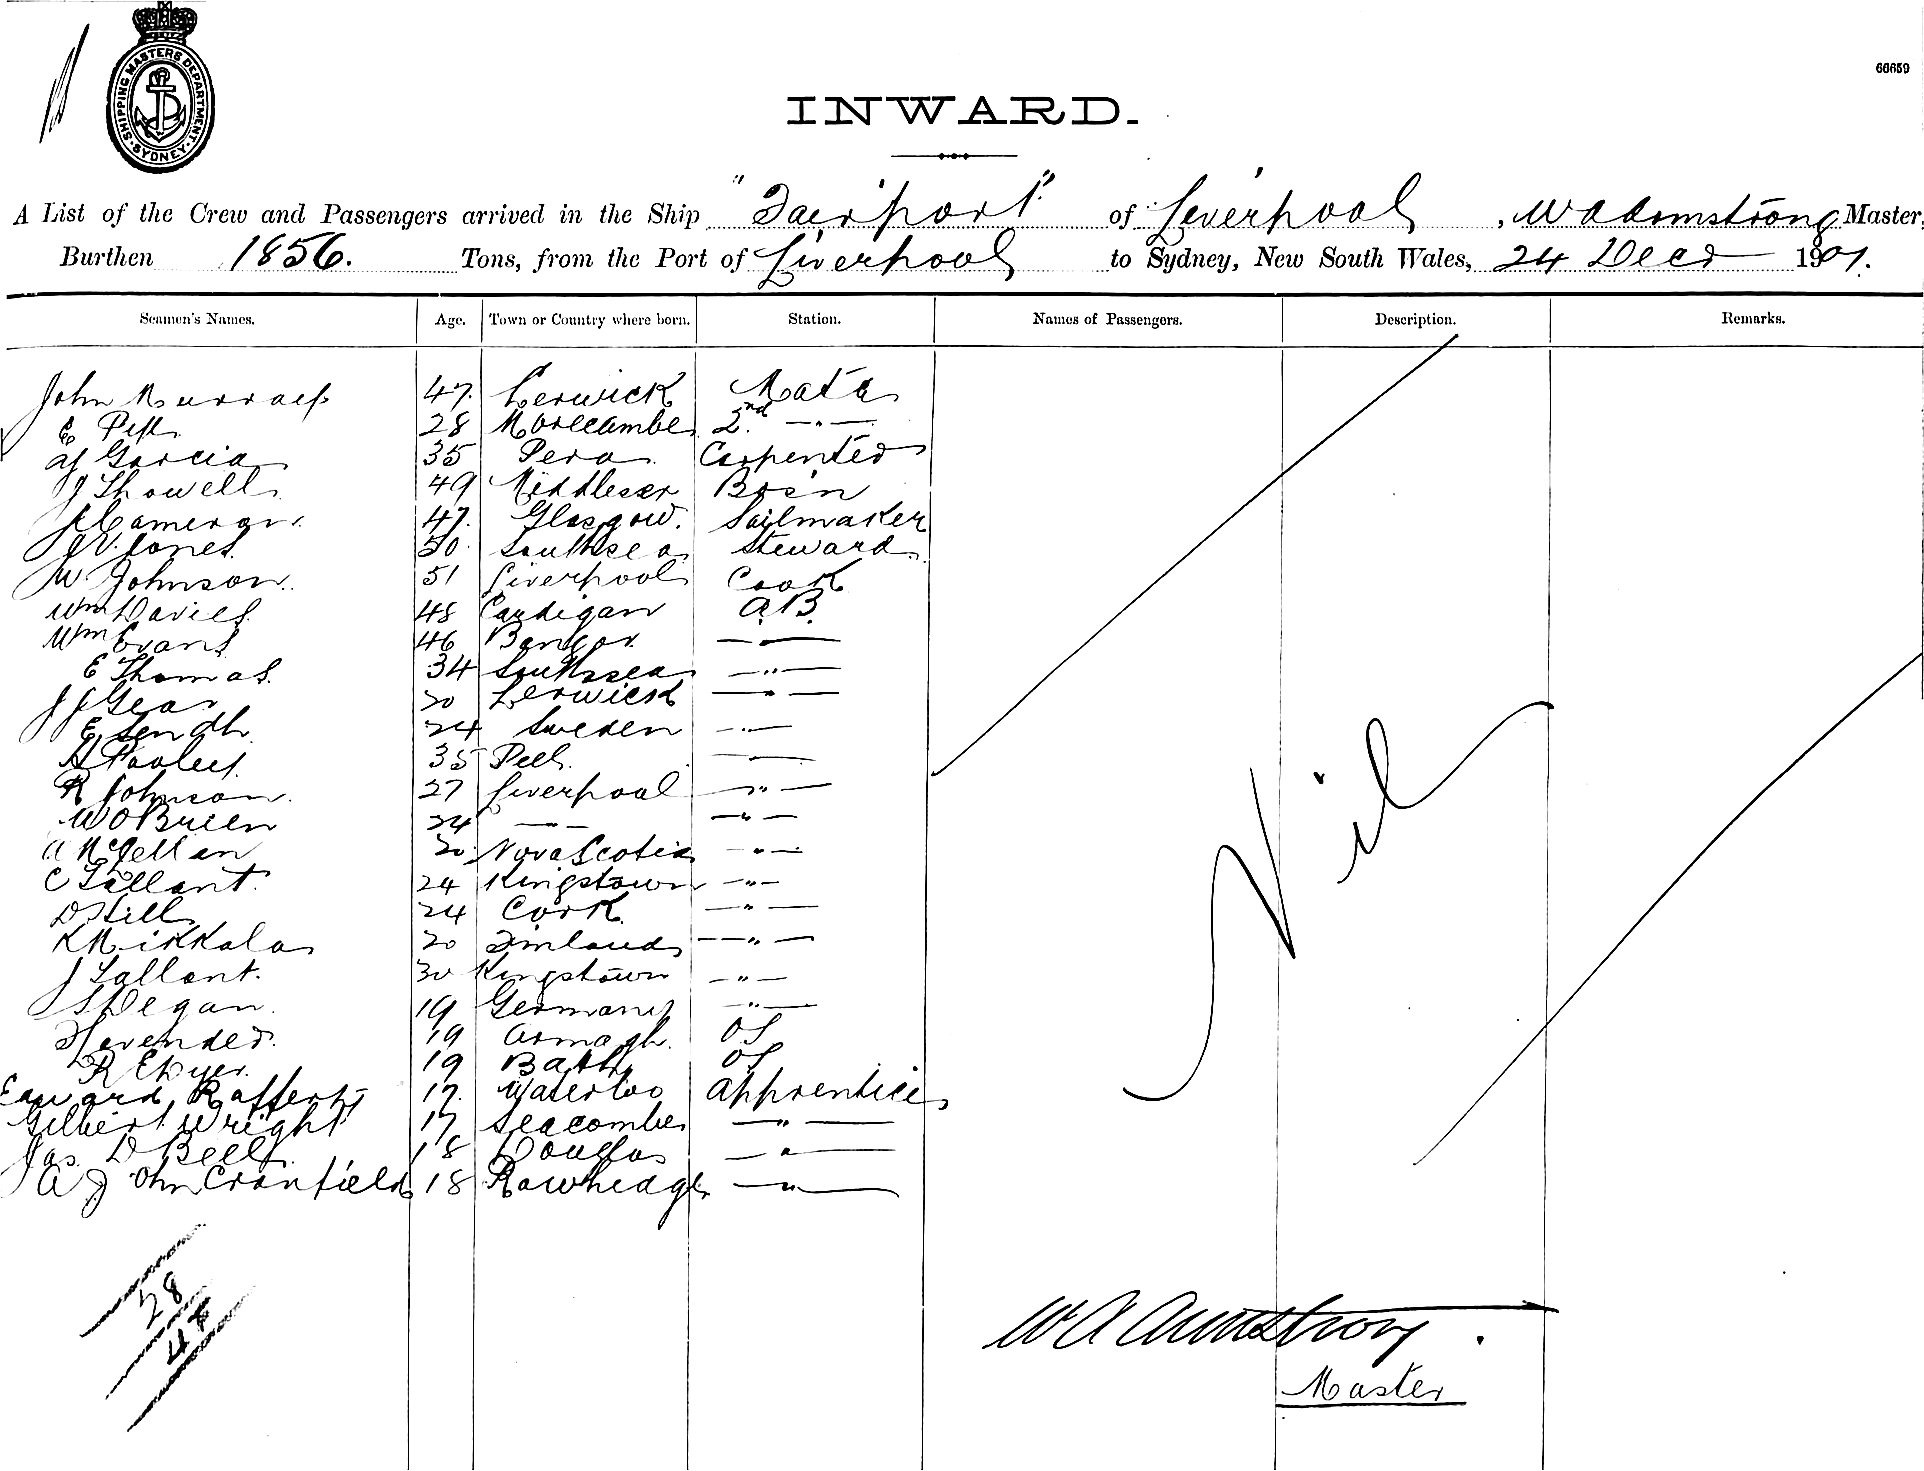 SHIPPING MASTERS DEPARTMENT
SYDNEY
66659
INWARD.
A List of the Crew and Passengers arrived in the Ship "Fairport" of Liverpool, W A Armstrong Master,
Burthen 1856. Tons, from the Port of Liverpool to Sydney, New South Wales, 24 Decr 1901.
Seamen's Names. Age. Town or Country where born. Station. Names of Passengers. Description. Remarks.
John Murray 47. Lerwick Mate
E 28 Morecambe 2nd —"—
Garcia 35 Carpenter
J Thowell 49 Middlesex Bosn
J Cameron 47. Glasgow. Sailmaker
J V Jones 50. Southsea Steward
W Johnson 51 Liverpool Cook
Wm Davies 48 Cardigan A.B.
Wm Evans 46 Bangor — —
E Thomas 34 Southsea —"—
J J Gear 20 Lerwick —"—
E 24 Sweden —"—
35 Peel —
R Johnson 27 Liverpool —"—
W OBrien 24 — — —"—
A 20 Nova Scotia —"—
C Tallant. 24 Kingstown —"—
D Hill 24 Cork —"—
K Mikkala 20 Finland —"—
J Tallant. 30 Kingstown —"—
J Degan 19 Germany —"—
19 Armagh. OS
R E Dyer 19 Bath OS
Edward Rafferty 17. Waterloo Apprentice
Gilbert Wright 17 Seacombe —"—
Jas D Bell 18 Douglas —"—
A John Cranfield 18 Rowhedge —"—
Nil
28
W A Armstrong.
Master